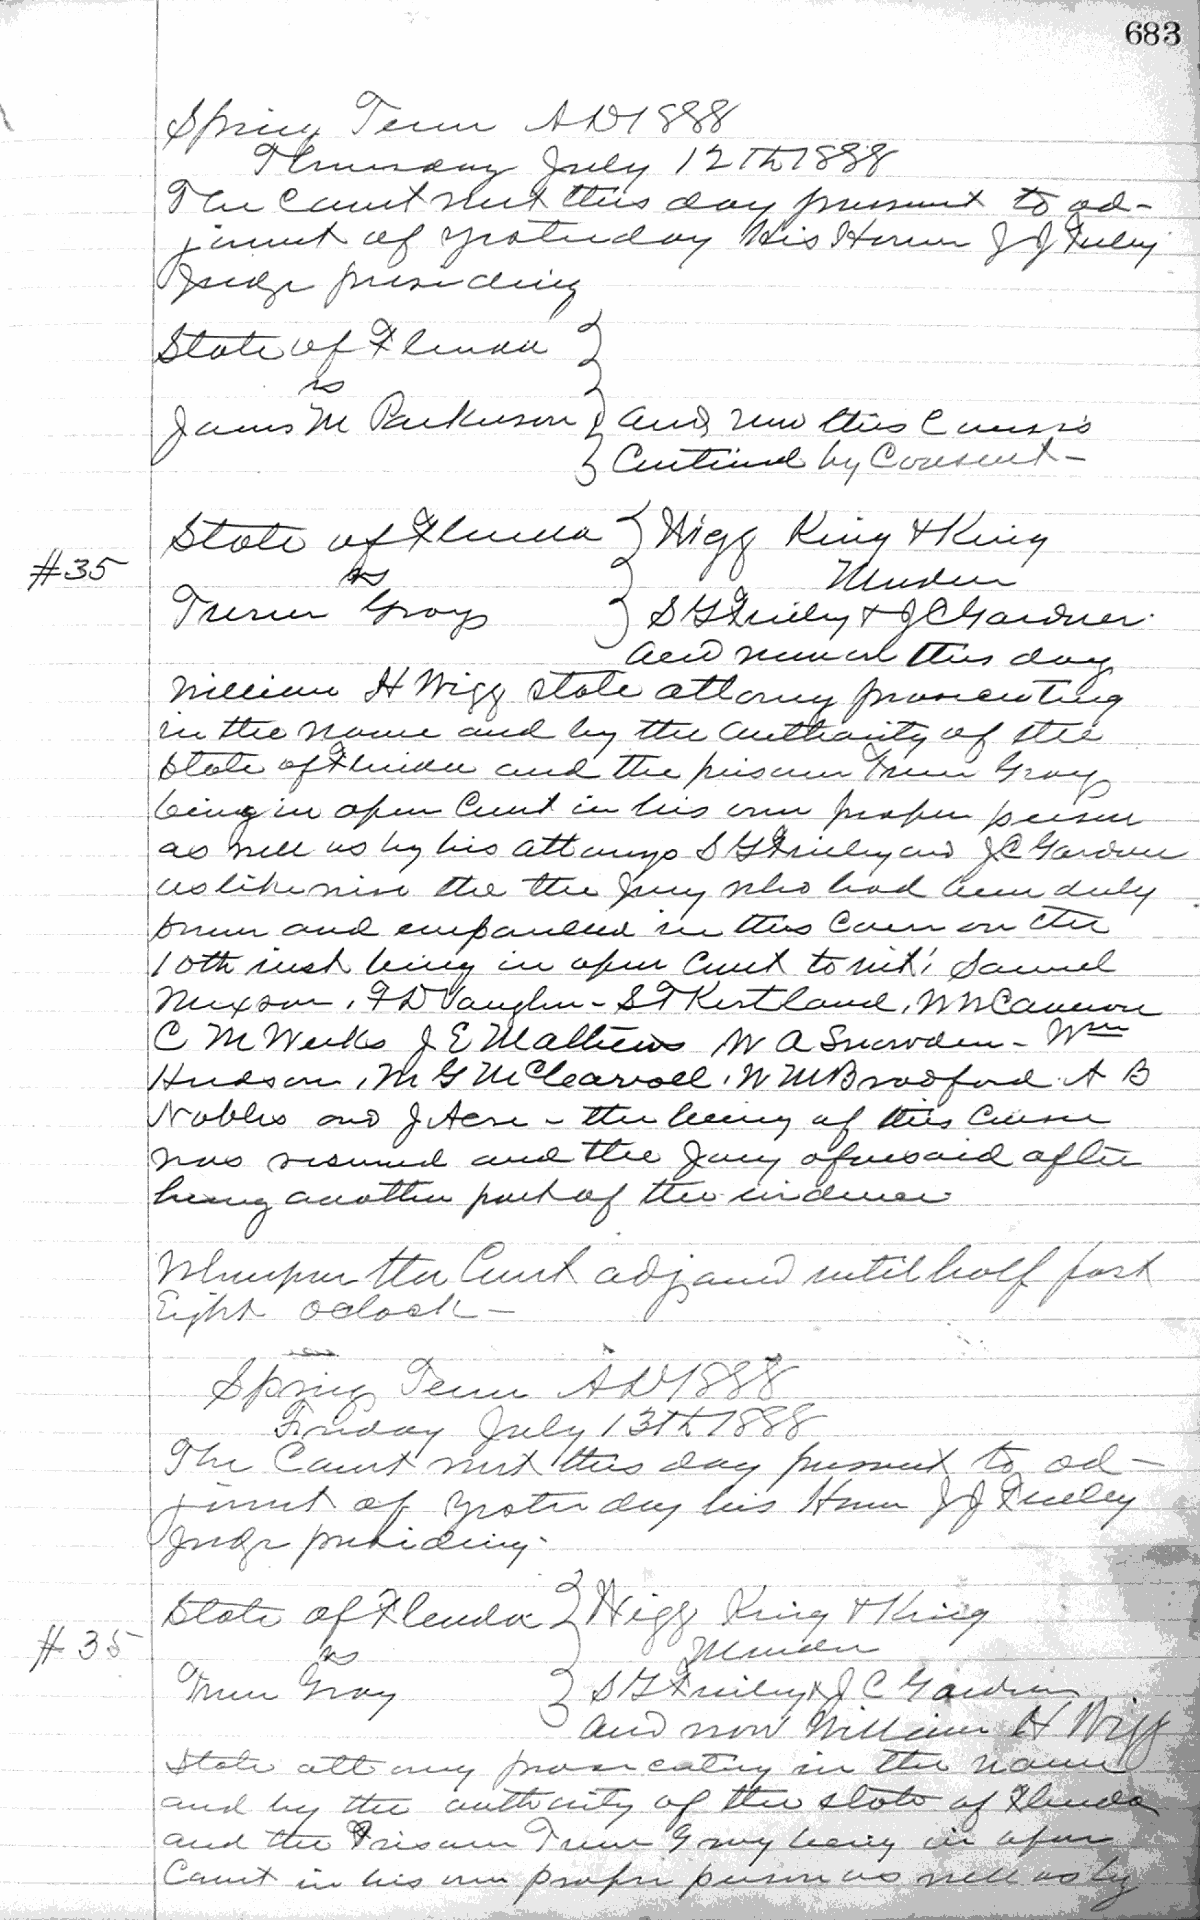 683
Spring Term AD 1888
Thursday July 12th 1888
The Court met this day pursuant to ad-
jimnt of yesterday his Honor J J Finley
Judge presiding
State of Florida
vs
James M Parkinson And now this Cause is
Continued by Consent -
State of Florida Wigg King & King
#35 vs Murder
Gray S G Finley & J C Gardner.
And now on this day
William H Wigg state attorny prosecuting
in the name and by the authority of the
State of Florida and the prisoner Gray
being in open Court in his own proper person
as well as by his attornys S G Finley and J C Gardner
as likewise the the Jury who had been duly
sworn and empanled in this Cause on the
10th inst being in open Court to wit; Samuel
, F D Vaughn - S T Kirtland, W N Cameron
C M Weeks J E Mathews W A Snowden - Wm
Hudson, M G McLearvoll, W M Bradford A B
Nobles and J Acre - the hering of this Cause
was resumed and the Jury aforesaid after
hering another part of the evidence
Whereupon the Court adjourned until half past
Eight oclock -
Spring Term AD 1888
Friday July 13th 1888
The Court met this day pursuant to ad -
jimnt of yesterday his Honor J J Finley
Judge presiding.
State of Florida Wigg King & King
#35 vs Murder
Gray S G Finley & J C Gardner
And now William H Wigg
State attorny prosecuting in the name
and by the authority of the state of Florida
and the Prisoner Gray being in open
Court in his own proper person as well as by